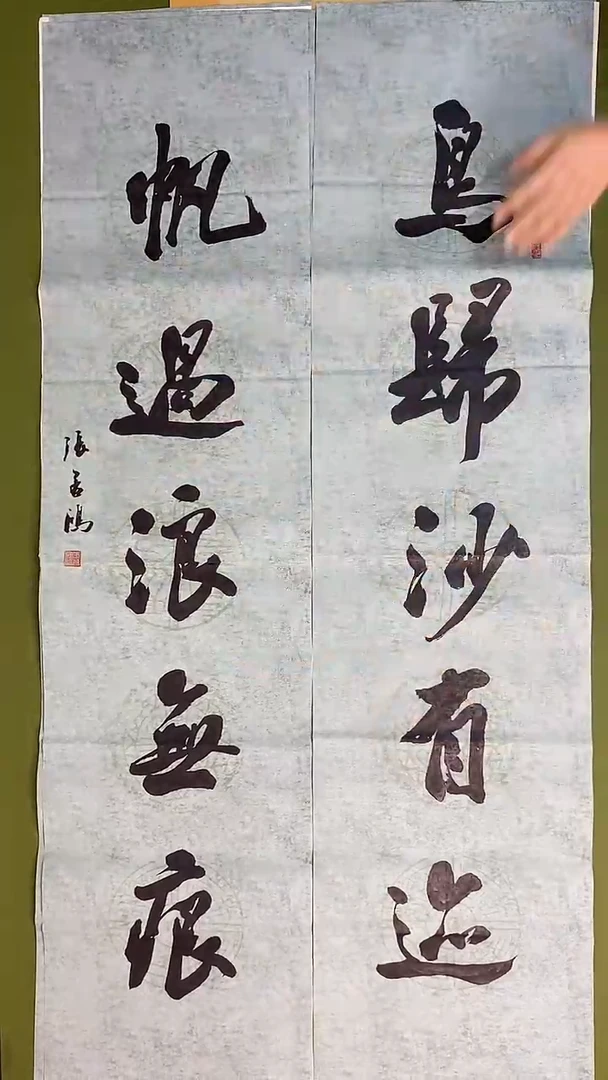 鳥歸沙有迹
帆過浪無痕
張 鴻